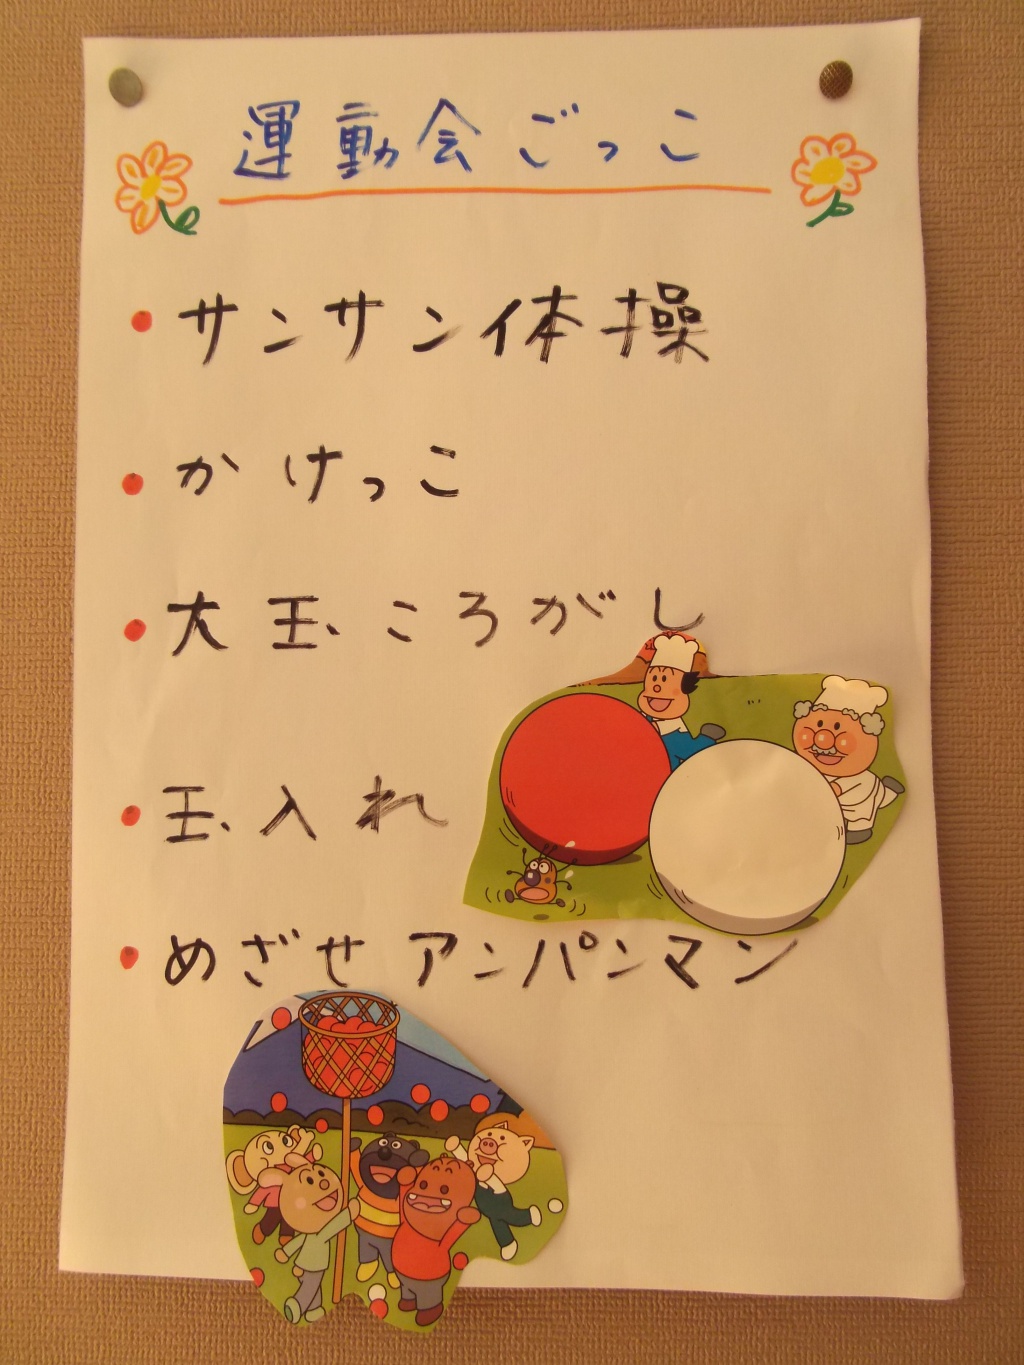 運動会ごっこ
サンサン体操
かけっこ
大玉ころがし
玉入れ
めざせアンパンマン